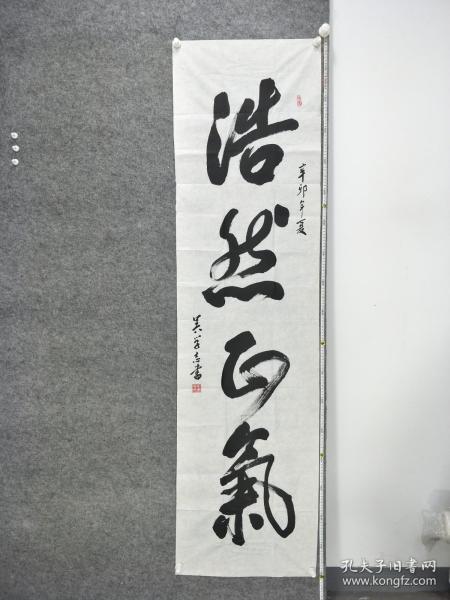 浩然正氣
辛卯年夏
吴学志書
孔夫子旧书网
www.kongfz.com